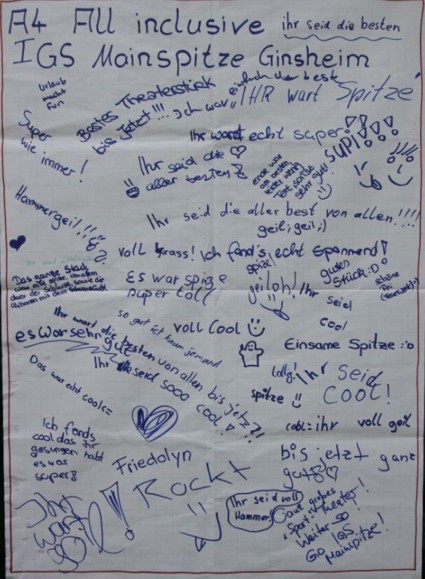 A4 All inclusive ihr seid die besten
IGS Mainspitze Ginsheim
Urlaub
macht
Fun
Bestes Theaterstück
bis jetzt!!!
einfach der beste
Ich war
IHR wart Spitze
Super
wie immer!
Ihr wart echt super!
SUPI!
Ihr seid die
aller besten!
Ende war
am besten
sehr gut!
Hammergeil!!!
Ihr seid die aller best von allen!!!!
geil; geil;)
voll krass! Ich fand's echt spannend!
Das ganze Stück
Es war spize
super toll
spize!
geiloh!
gutes
Stück :D
Ihr
seid
cool
Ihr wart die besten von allen bis jetz?!!
es war sehr gut
so gut ist kaum jemand
voll cool
Einsame Spitze :o
Ihr seid sooo cool!
Das war echt cool=
Lolly!
Ihr seid
COOL!
spitze
cool: ihr voll geil
Ich fands
cool das ihr
gesungen habt
es war
super
bis jetzt ganz
gut
Friedolyn
Rockt
Ihr
wart
cool
Ihr seid voll
Hammer!
Sport-Theater!
Weiter so!
Go IGS
Mainspitze!